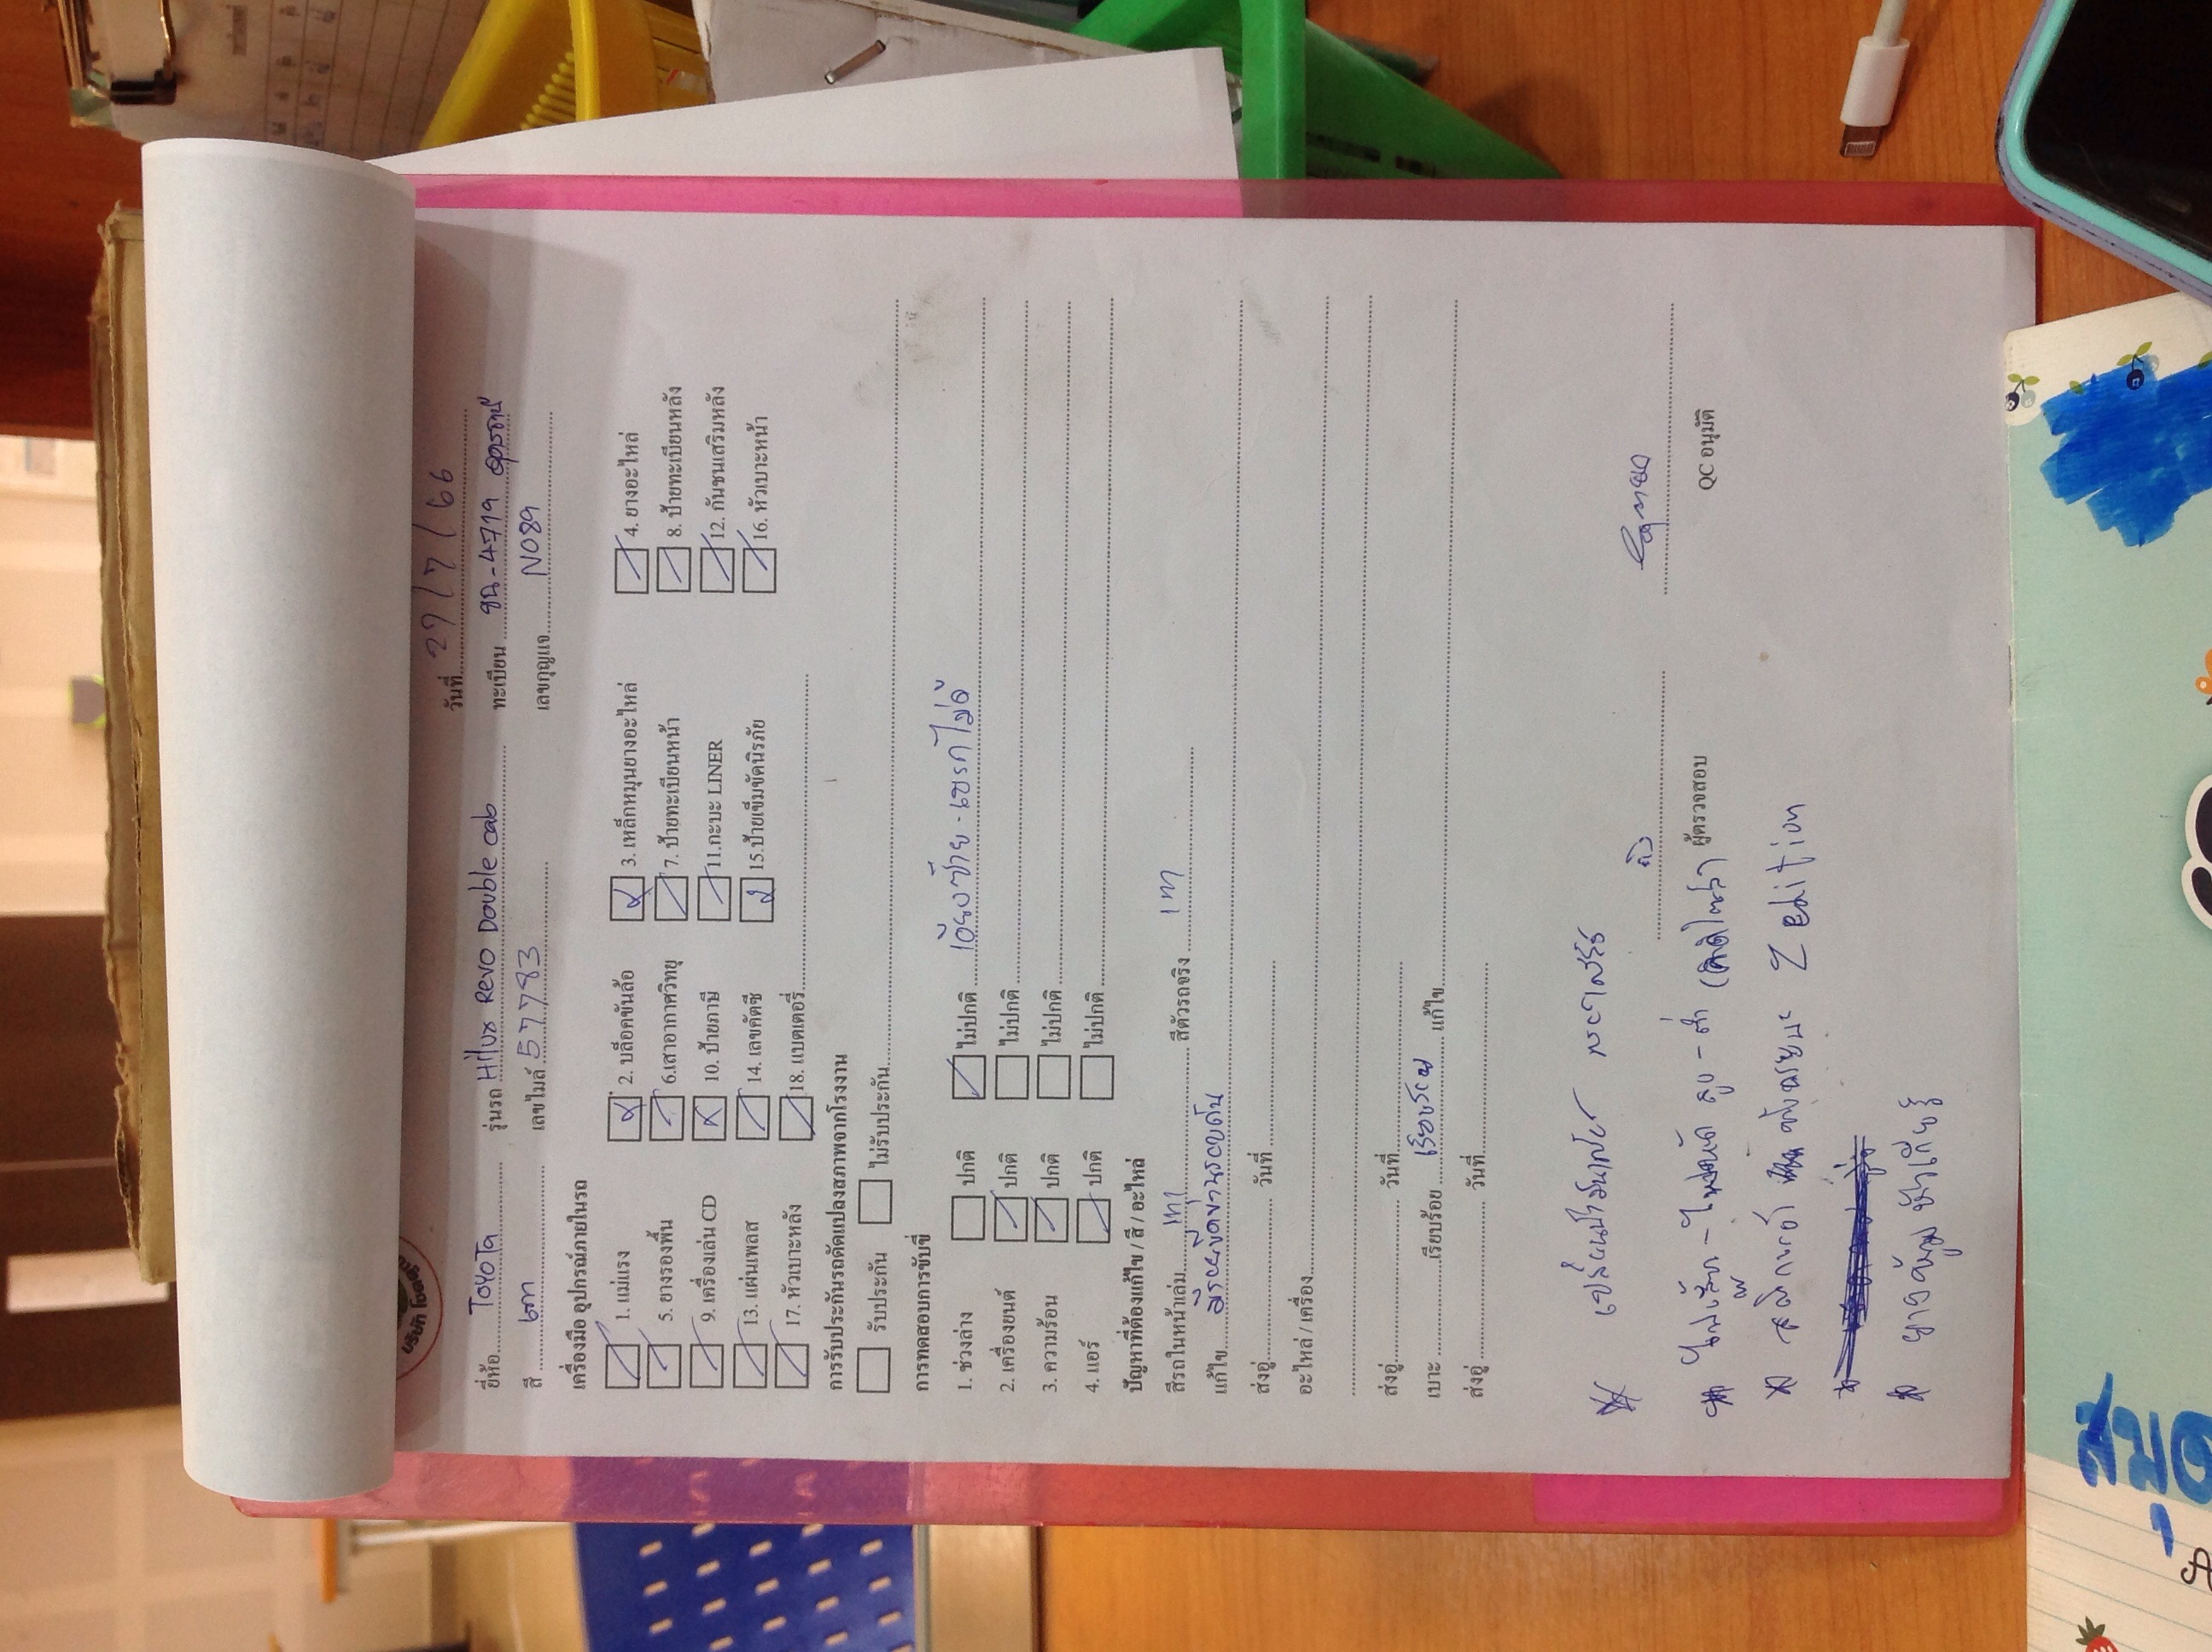 บริษัท
วันที่ 27/7/66
ยี่ห้อ TOYOTA รุ่นรถ Hilux Revo Double cab ทะเบียน ขฉ-4719 อุดรธานี
สี เทา เลขไมล์ 57783 เลขกุญแจ N089
เครื่องมือ อุปกรณ์ภายในรถ
1. แม่แรง 2. บล็อคขันล้อ 3. เหล็กหมุนยางอะไหล่ 4. ยางอะไหล่
5. ยางรองพื้น 6.เสาอากาศวิทยุ 7. ป้ายทะเบียนหน้า 8. ป้ายทะเบียนหลัง
9. เครื่องเล่น CD 10. ป้ายภาษี 11.กะบะ LINER 12. กันชนเสริมหลัง
13. แผ่นเพลส 14. เลขคัดซี 15.ป้ายเข็มขัดนิรภัย 16. หัวเบาะหน้า
17. หัวเบาะหลัง 18. แบตเตอรี่
การรับประกันรถดัดแปลงสภาพจากโรงงาน
รับประกัน ไม่รับประกัน
การทดสอบการขับขี่
1. ช่วงล่าง ปกติ ไม่ปกติ เอียงซ้าย - เบรกไม่ดี
2. เครื่องยนต์ ปกติ ไม่ปกติ
3. ความร้อน ปกติ ไม่ปกติ
4. แอร์ ปกติ ไม่ปกติ
ปัญหาที่ต้องแก้ไข / สี / อะไหล่
สีรถในหน้าเล่ม เทา สีตัวรถจริง เทา
แก้ไข มีรอยขีดข่วนรอบคัน
ส่งอู่ วันที่
อะไหล่ / เครื่อง
ส่งอู่ วันที่
เบาะ เรียบร้อย เรียบร้อย แก้ไข
ส่งอู่ วันที่
ผู้ตรวจสอบ QC อนุมัติ
สูง - ต่ำ
Z edition
สมุด